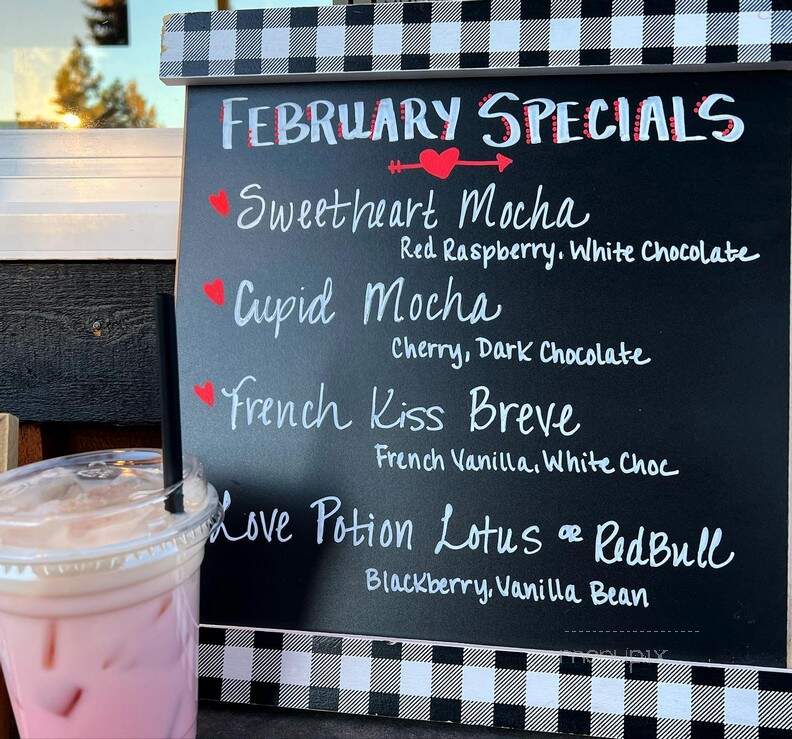 FEBRUARY SPECIALS
Sweetheart Mocha
Red Raspberry, White Chocolate
Cupid Mocha
Cherry, Dark Chocolate
French Kiss Breve
French Vanilla, White Choc
Love Potion Lotus OR RedBull
Blackberry, Vanilla Bean
menupix